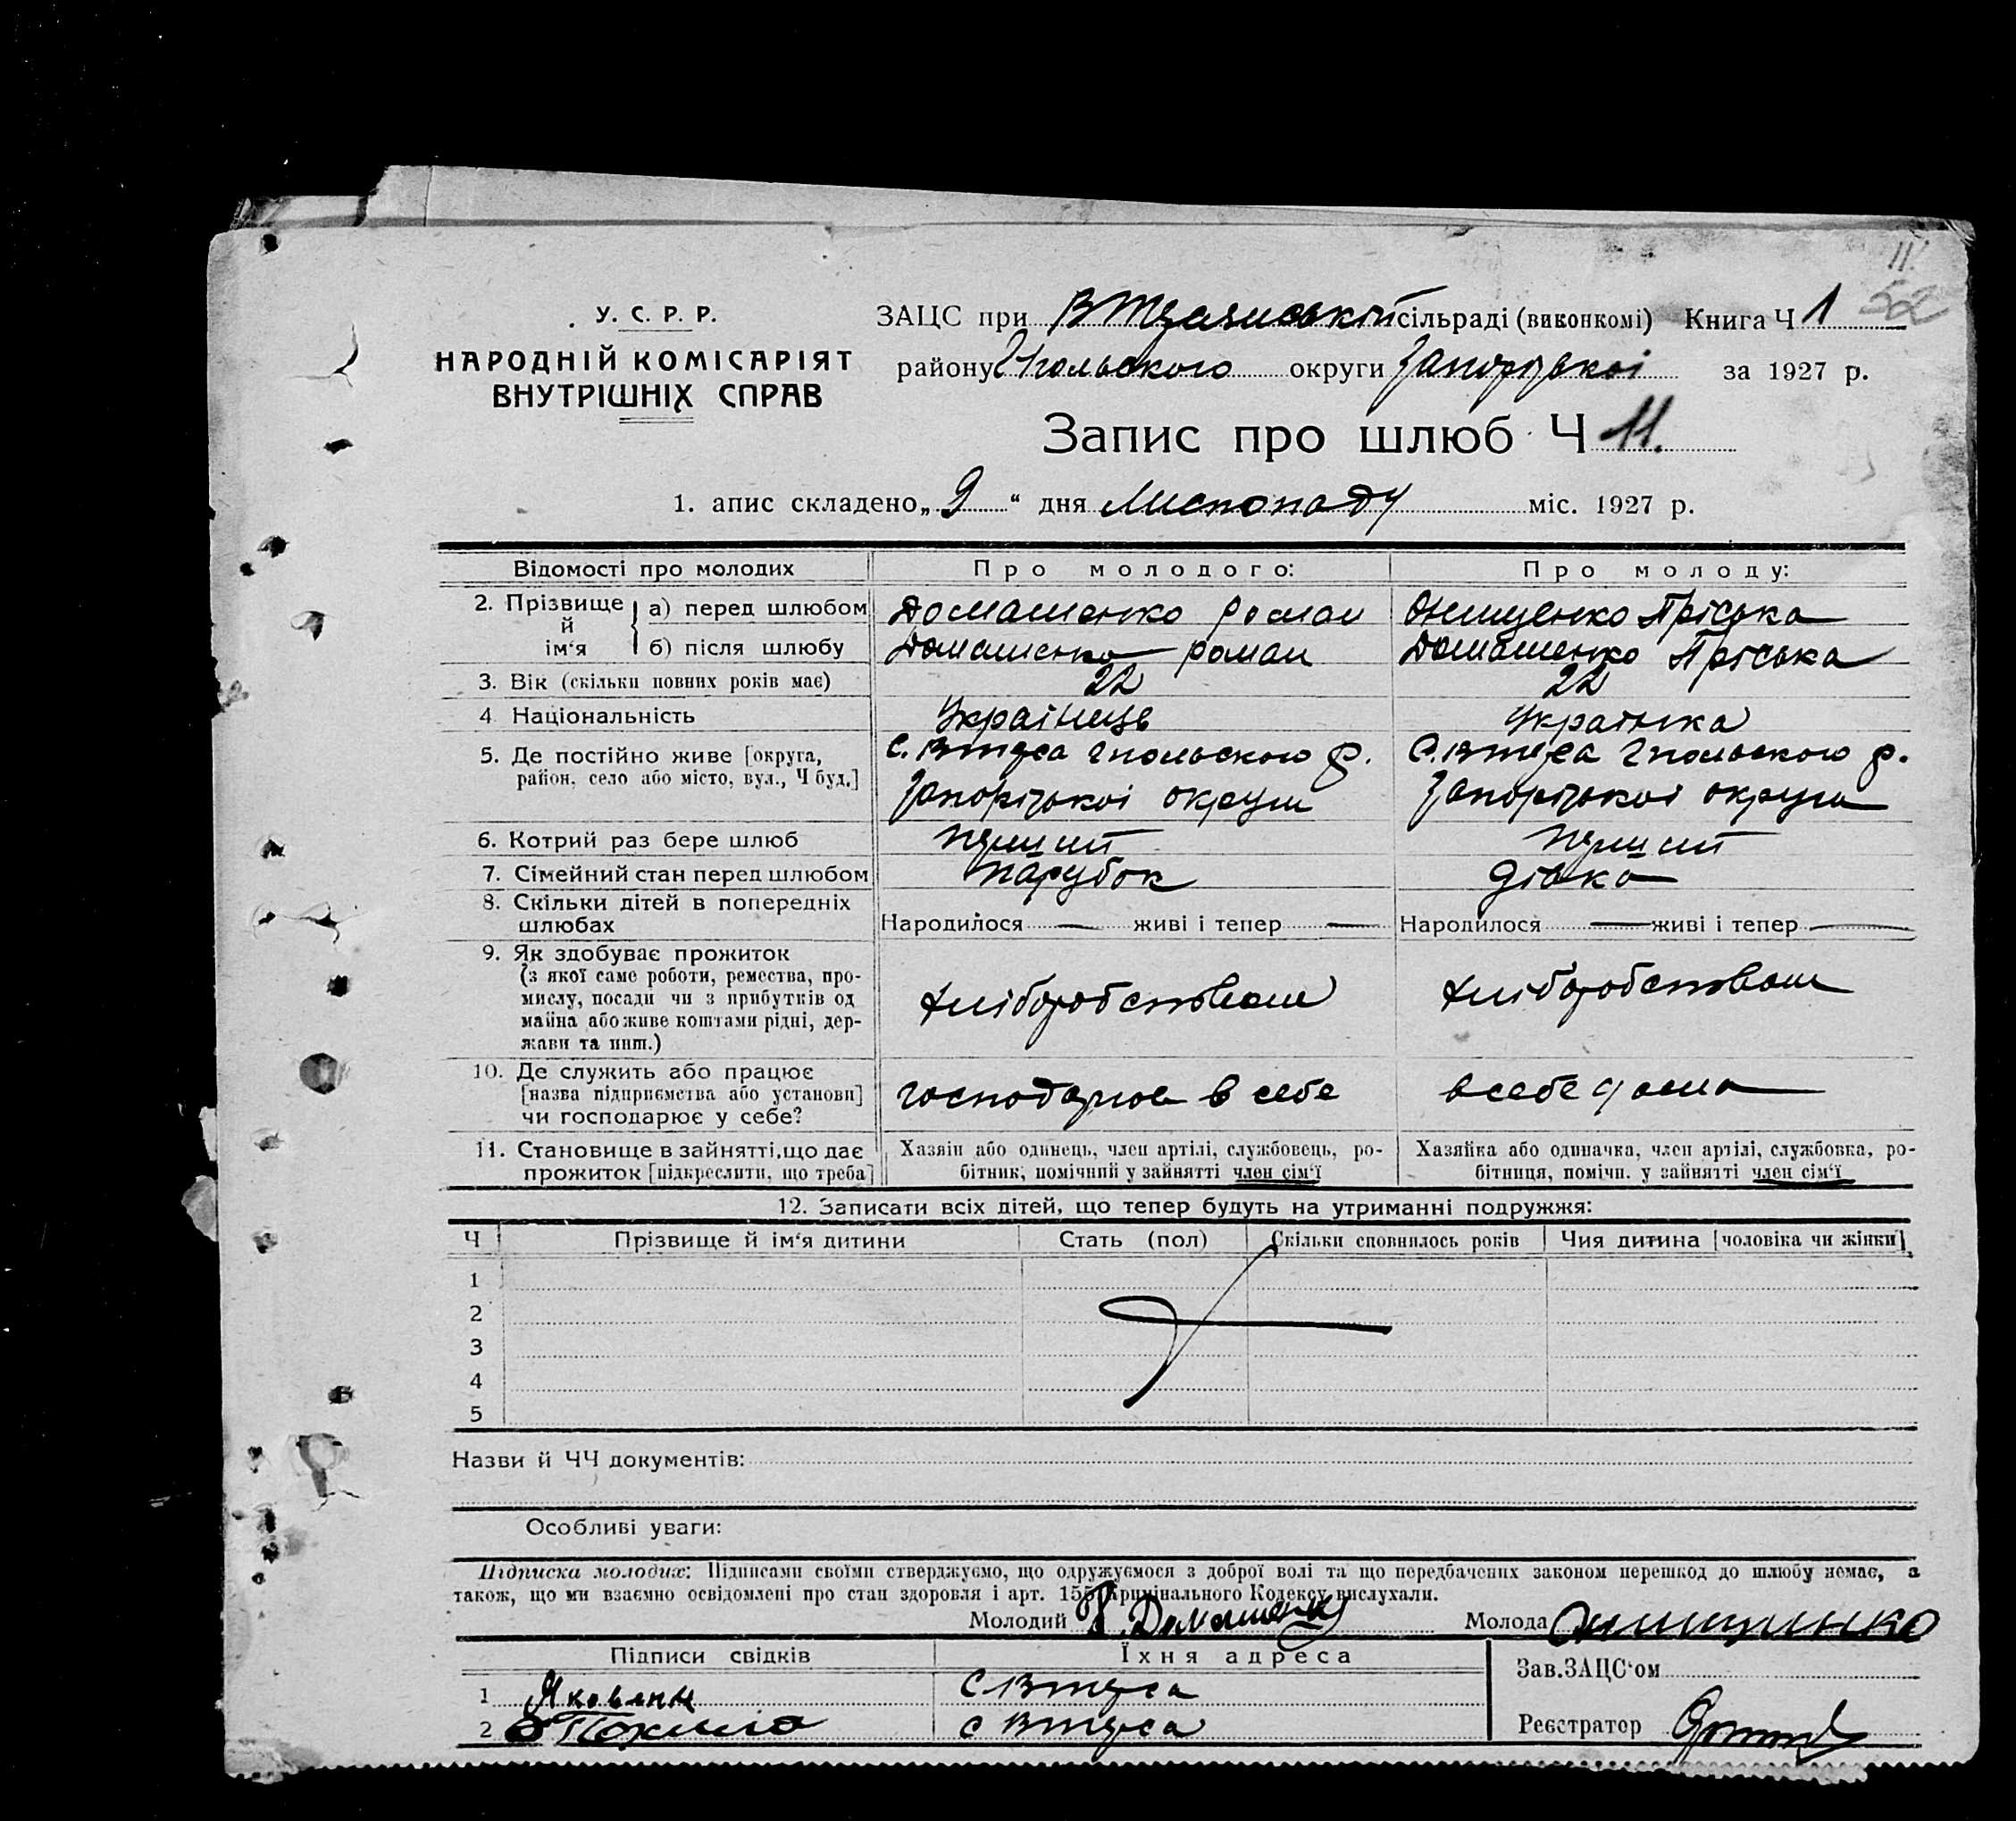 11.
52
У. С. Р. Р.
НАРОДНІЙ КОМІСАРІЯТ
ВНУТРІШНІХ СПРАВ
ЗАЦС при сільраді (виконкомі) Книга Ч 1
району округи Запорізькоі за 1927 р.
Запис про шлюб Ч 11.
1. апис складено „ 9 “ дня Листопаду міс. 1927 р.
Відомості про молодих
Про молодого:
Про молоду:
2. Прізвище й ім‘я
а) перед шлюбом
Домашенко Роман
Онищенко Пріська
б) після шлюбу
Домашенко Роман
Домашенко Пріська
3. Вік (скільки повних років має)
22
22
4 Національність
Українець
Українка
5. Де постійно живе [округа,
район, село або місто, вул., Ч буд.]
с. р.
Запорізькоі округи
с. р.
Запорізькоі округи
6. Котрий раз бере шлюб
7. Сімейний стан перед шлюбом
Парубок
Дівка
8. Скільки дітей в попередніх
шлюбах
Народилося — живі і тепер —
Народилося — живі і тепер —
9. Як здобуває прожиток
(з якої саме роботи, ремества, про-
мислу, посади чи з прибутків од
майна або живе коштами рідні, дер-
жави та инш.)
хліборобством
хліборобством
10. Де служить або працює
[назва підприємства або установи]
чи господарює у себе?
господарює в себе
в себе дома
11. Становище в зайнятті, що дає
прожиток [підкреслити, що треба]
Хазяїн або одинець, член артілі, службовець, ро-
бітник, помічний у зайнятті член сім‘ї
Хазяйка або одиначка, член артілі, службовка, ро-
бітниця, помічн. у зайнятті член сім‘ї
12. Записати всіх дітей, що тепер будуть на утриманні подружжя:
Ч Прізвище й ім‘я дитини Стать (пол) Скільки сповнилось років Чия дитина [чоловіка чи жінки]
1
2
3
4
5
Назви й ЧЧ документів:
Особливі уваги:
Підписка молодих: Підписами своїми стверджуємо, що одружуємося з доброї волі та що передбачених законом перешкод до шлюбу немає, а
також, що ми взаємно освідомлені про стан здоровля і арт. 155 Кримінального Кодексу вислухали.
Молодий Р. Домашенко Молода
Підписи свідків
Їхня адреса
Зав.ЗАЦС‘ом
1
2
Реєстратор